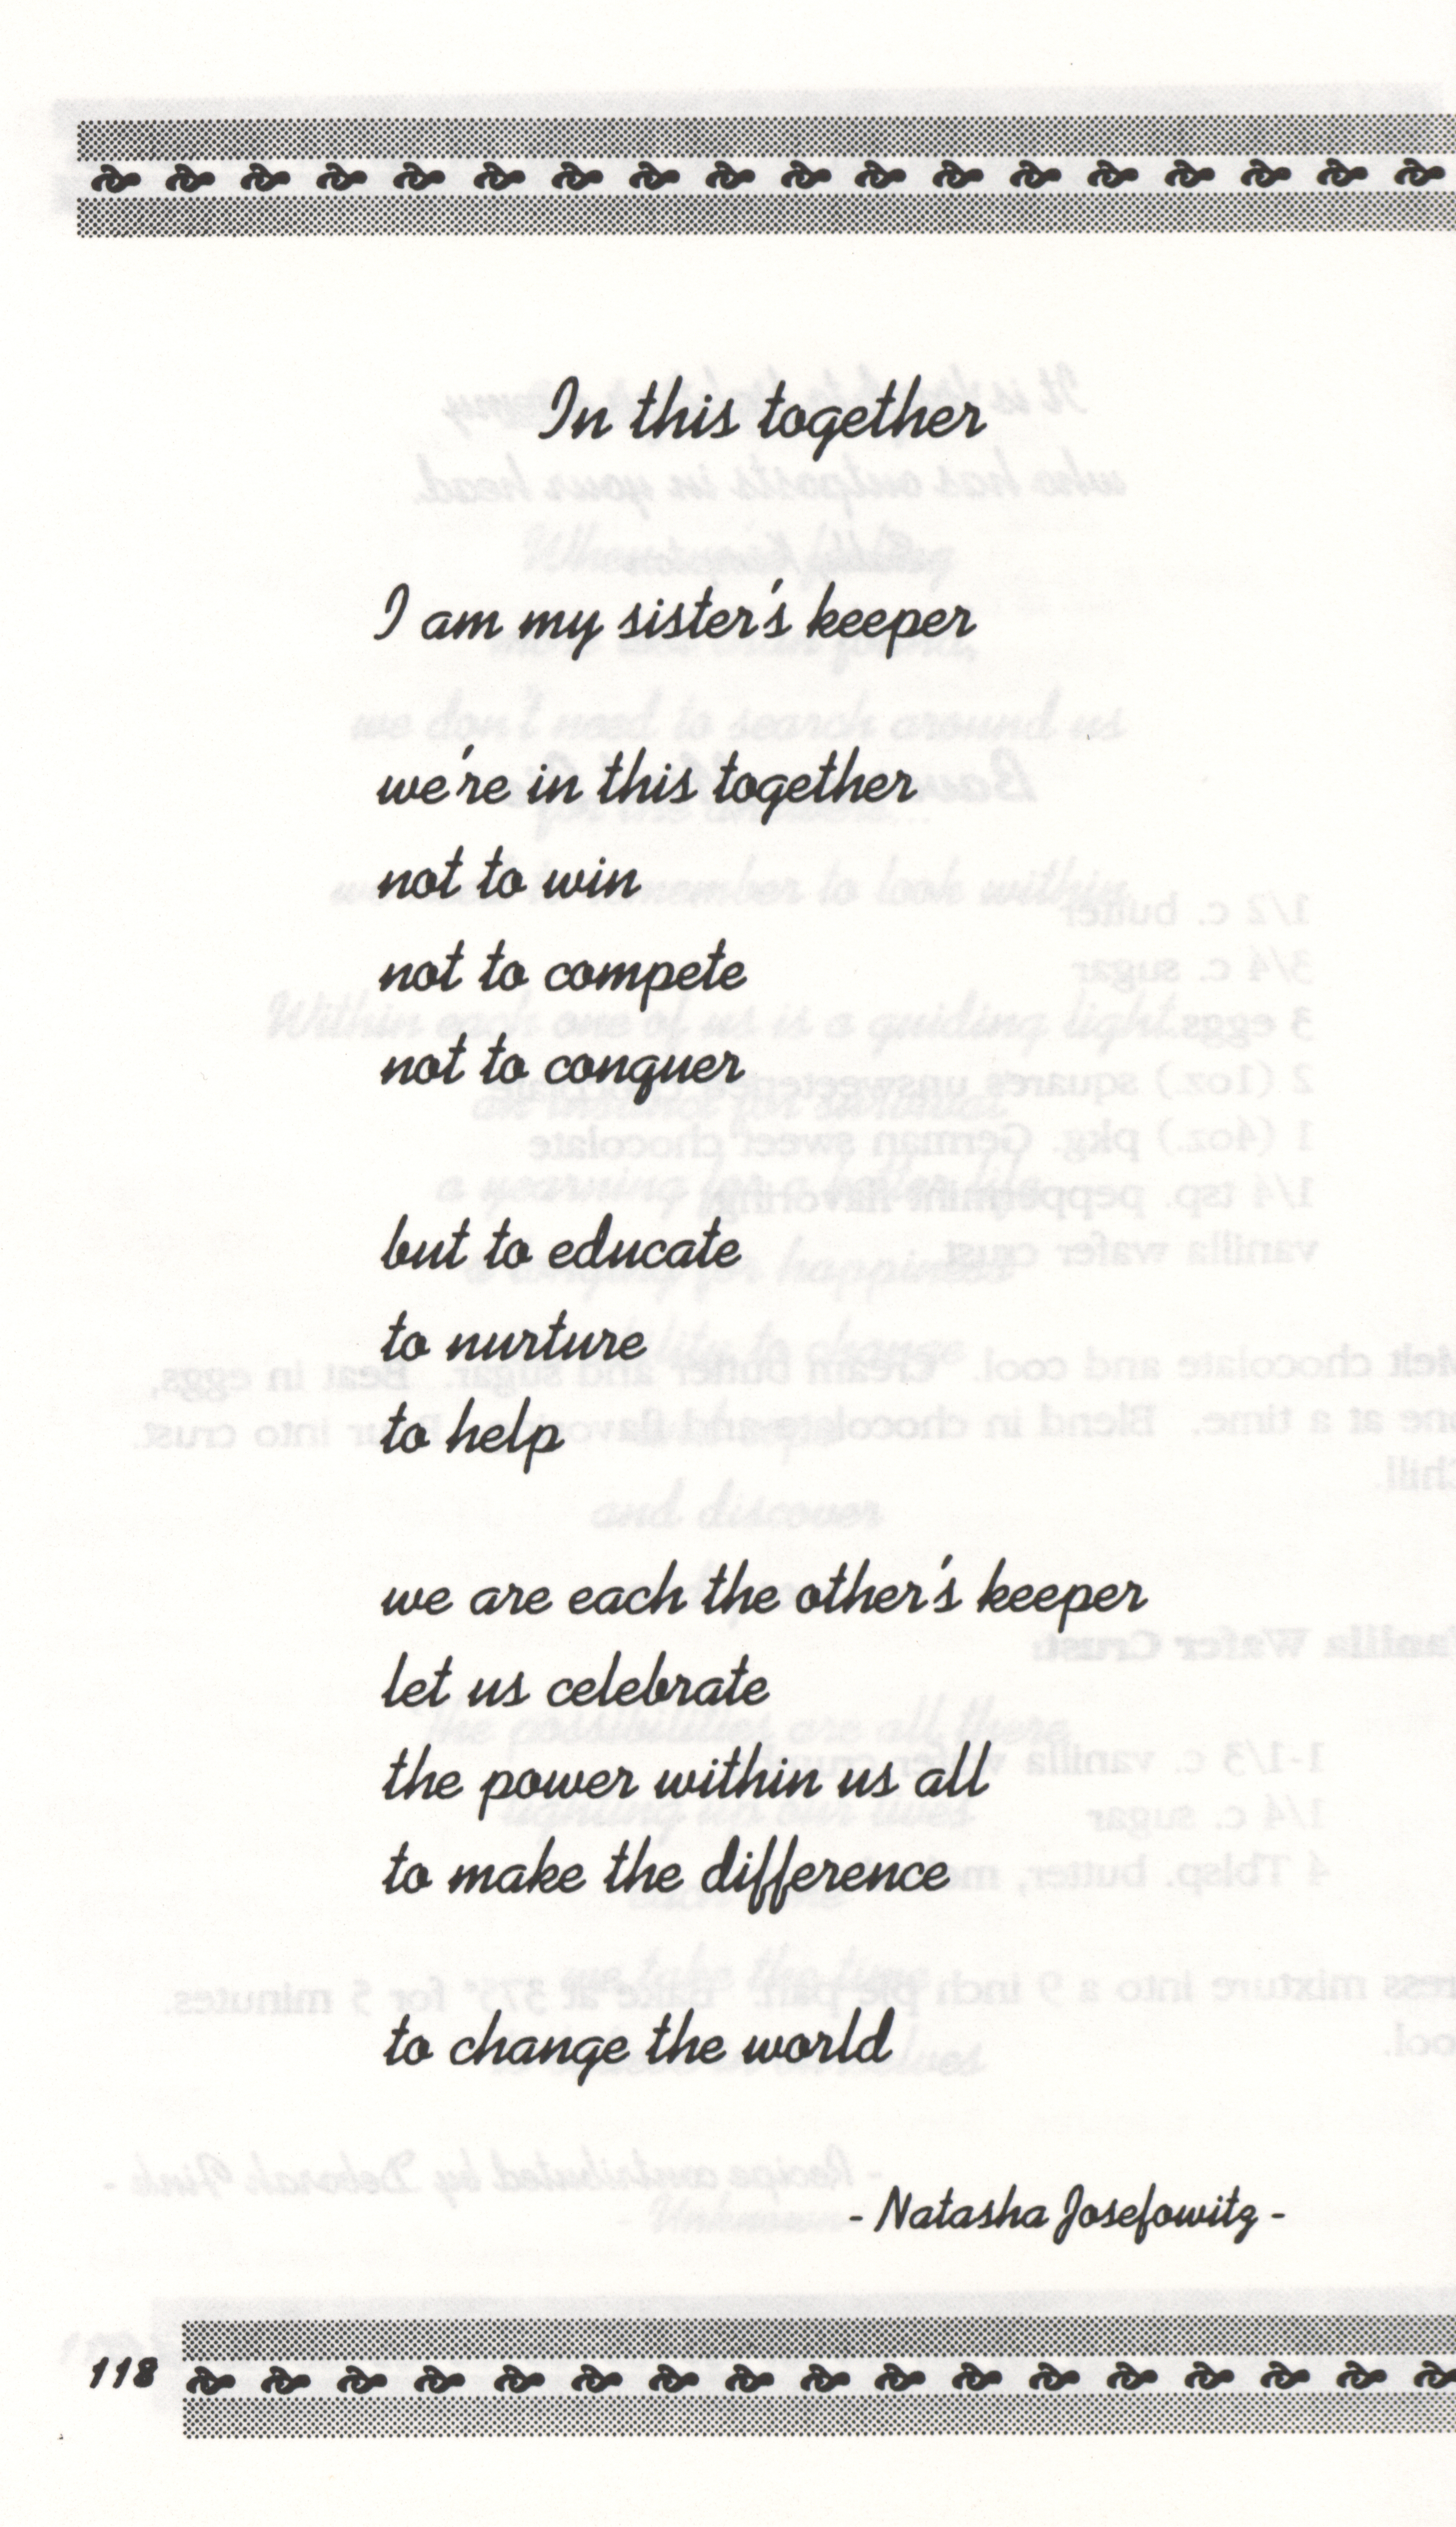 In this together
I am my sister's keeper
we're in this together
not to win
not to compete
not to conquer
but to educate
to nurture
to help
we are each the other's keeper
let us celebrate
the power within us all
to make the difference
to change the world
- Natasha Josefowitz -
118